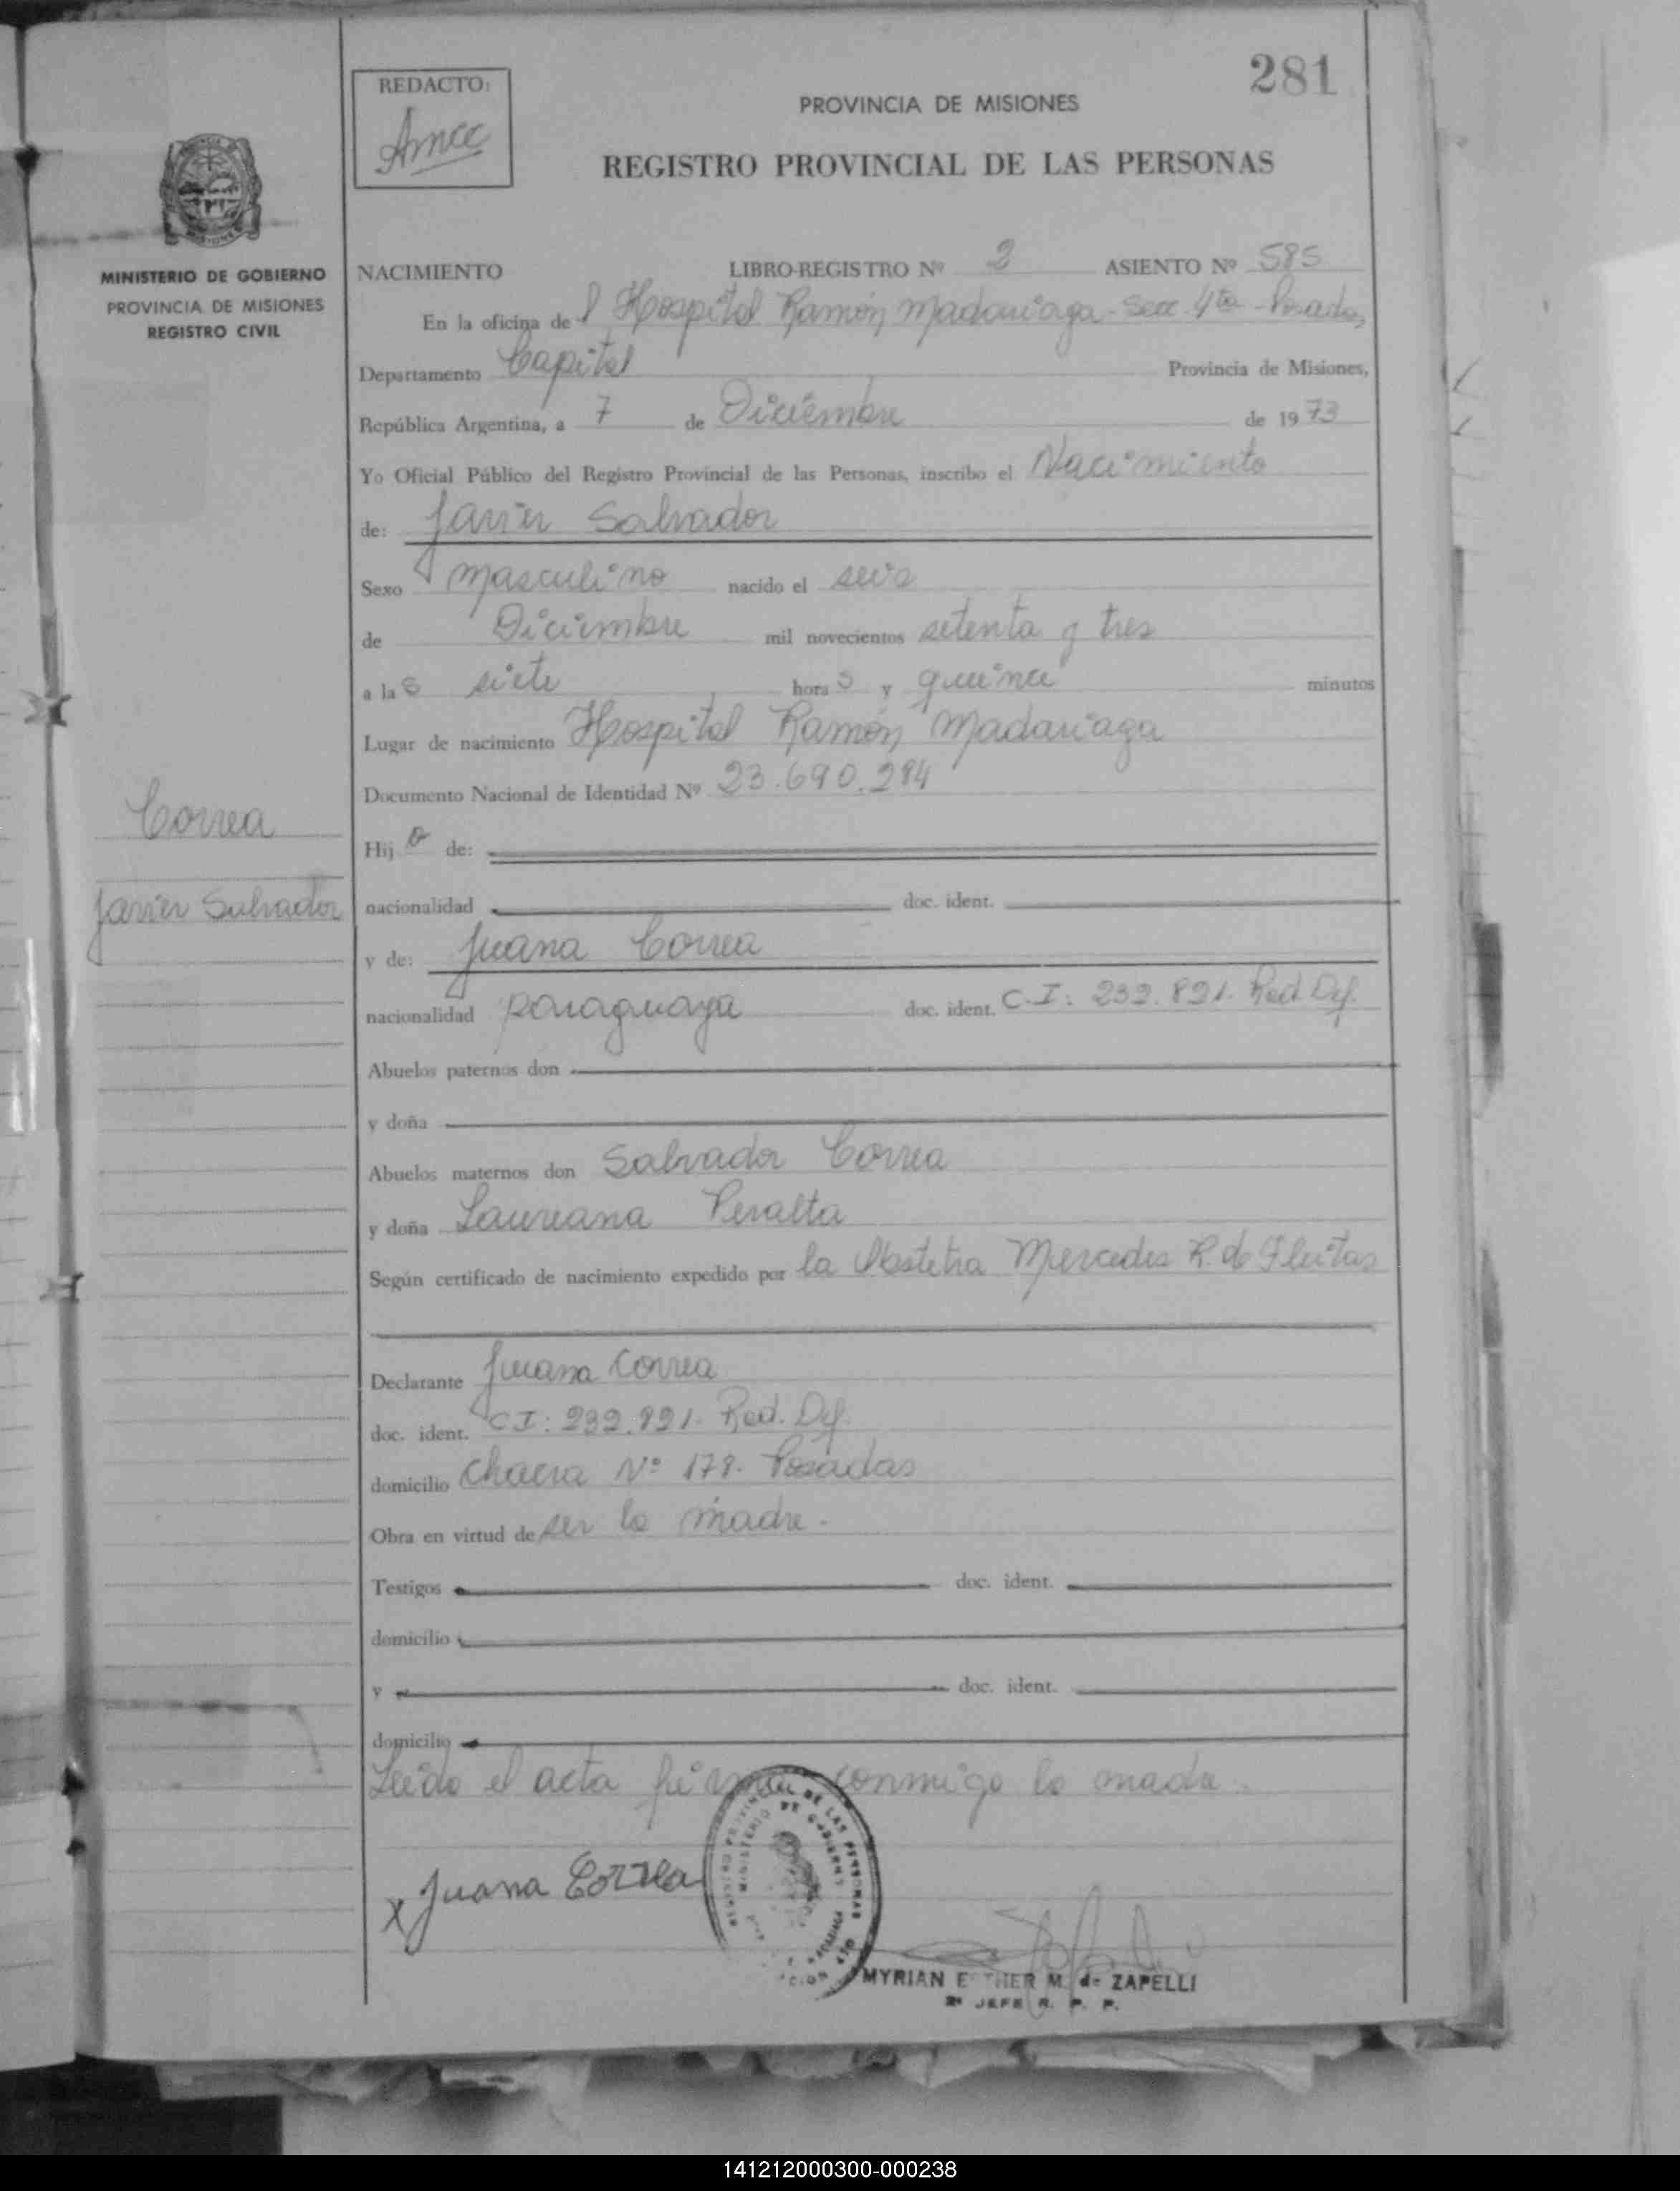 281
REDACTO:
PROVINCIA DE MISIONES
REGISTRO PROVINCIAL DE LAS PERSONAS
MINISTERIO DE GOBIERNO
PROVINCIA DE MISIONES
REGISTRO CIVIL
NACIMIENTO LIBRO-REGISTRO Nº 2 ASIENTO Nº 585
En la oficina del Hospital Ramón Madariaga - Secc 4ta - Posadas,
Departamento Capital Provincia de Misiones,
República Argentina, a 7 de Diciembre de 1973
Yo Oficial Público del Registro Provincial de las Personas, inscribo el Nacimiento
de: Javier Salvador
Sexo masculino nacido el seis
de Diciembre mil novecientos setenta y tres
a las siete horas y quince minutos
Lugar de nacimiento Hospital Ramón Madariaga
Documento Nacional de Identidad Nº 23.690.294
Correa
Javier Salvador
Hijo de:
nacionalidad doc. ident.
y de: Juana Correa
nacionalidad paraguaya doc. ident. C.I: 232.821. Red. Def.
Abuelos paternos don
y doña
Abuelos maternos don Salvador Correa
y doña Laureana Peralta
Según certificado de nacimiento expedido por la Obstetra Mercedes R. de Fleitas
Declarante Juana Correa
doc. ident. C I: 232.821. Red. Def.
domicilio Chacra Nº 178. Posadas
Obra en virtud de ser la madre.
Testigos doc. ident.
domicilio
y doc. ident.
domicilio
Leída el acta firma conmigo la madre.
x Juana Correa
MYRIAN ESTHER M. de ZAPELLI
2º JEFE R. P. P.
141212000300-000238